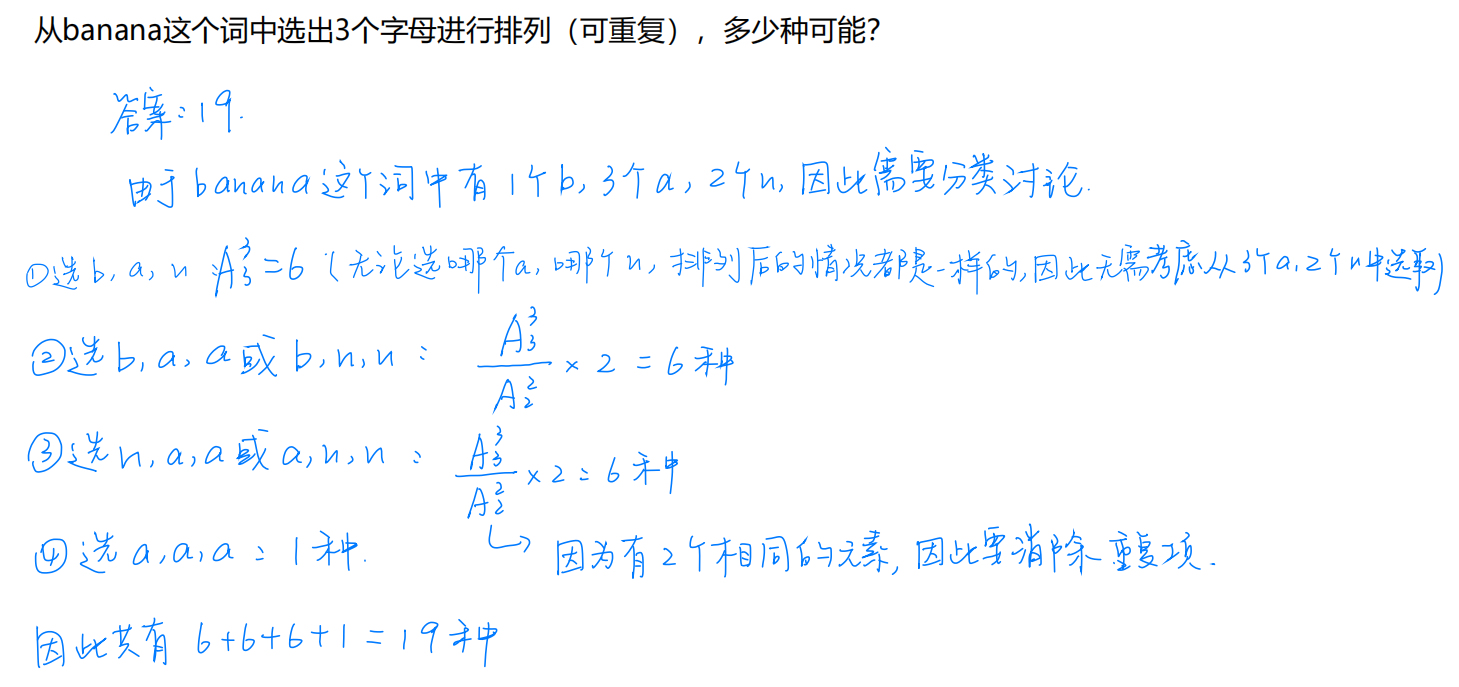 从banana这个词中选出3个字母进行排列（可重复），多少种可能？
答案：19.
由于banana这个词中有1个b，3个a，2个n，因此需要分类讨论.
①选b，a，n：A₃³=6（无论选哪个a，哪个n，排列后的情况都是一样的，因此无需考虑从3个a，2个n中选取）
②选b，a，a或b，n，n： A₃³/A₂² × 2 = 6种
③选n，a，a或a，n，n： A₃³/A₂² × 2 = 6种
④选a，a，a：1种. ↳ 因为有2个相同的元素，因此要消除重复项.
因此共有 6+6+6+1=19种